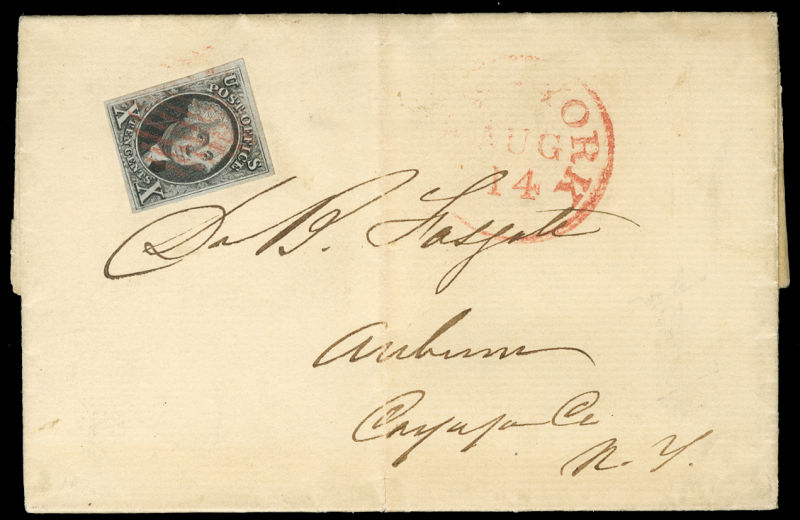 U S
POST OFFICE
X TEN CENTS X
YORK
AUG
14
Dr B. Fosgate
Auburn
Cayuga Co
N. Y.